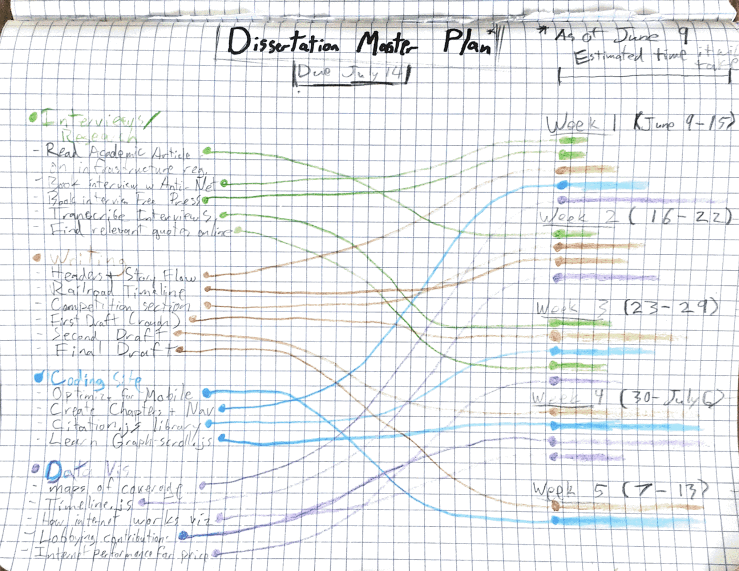 Dissertation Master Plan*
Due July 14
* As of June 9
Estimated time it will take
Interviews/
Research
- Read Academic Article
on infrastructure reg.
- Book interview w Anti-Net
- Book interview Free Press
- Transcribe Interviews
- Find relevant quotes online
Writing
- Headers + Story Flow
- Railroad Timeline
- Competition section
- First Draft (rough)
- Second Draft
- Final Draft
Coding Site
- Optimize for Mobile
- Create Chapters + Nav
- Citation.js library
- Learn Graph-scroll.js
Data Vis
- Maps of coverage
- Timeline.js
- How internet works viz
- Lobbying contributions
- Internet performance for price
Week 1 (June 9-15)
Week 2 (16-22)
Week 3 (23-29)
Week 4 (30-July 6)
Week 5 (7-13)